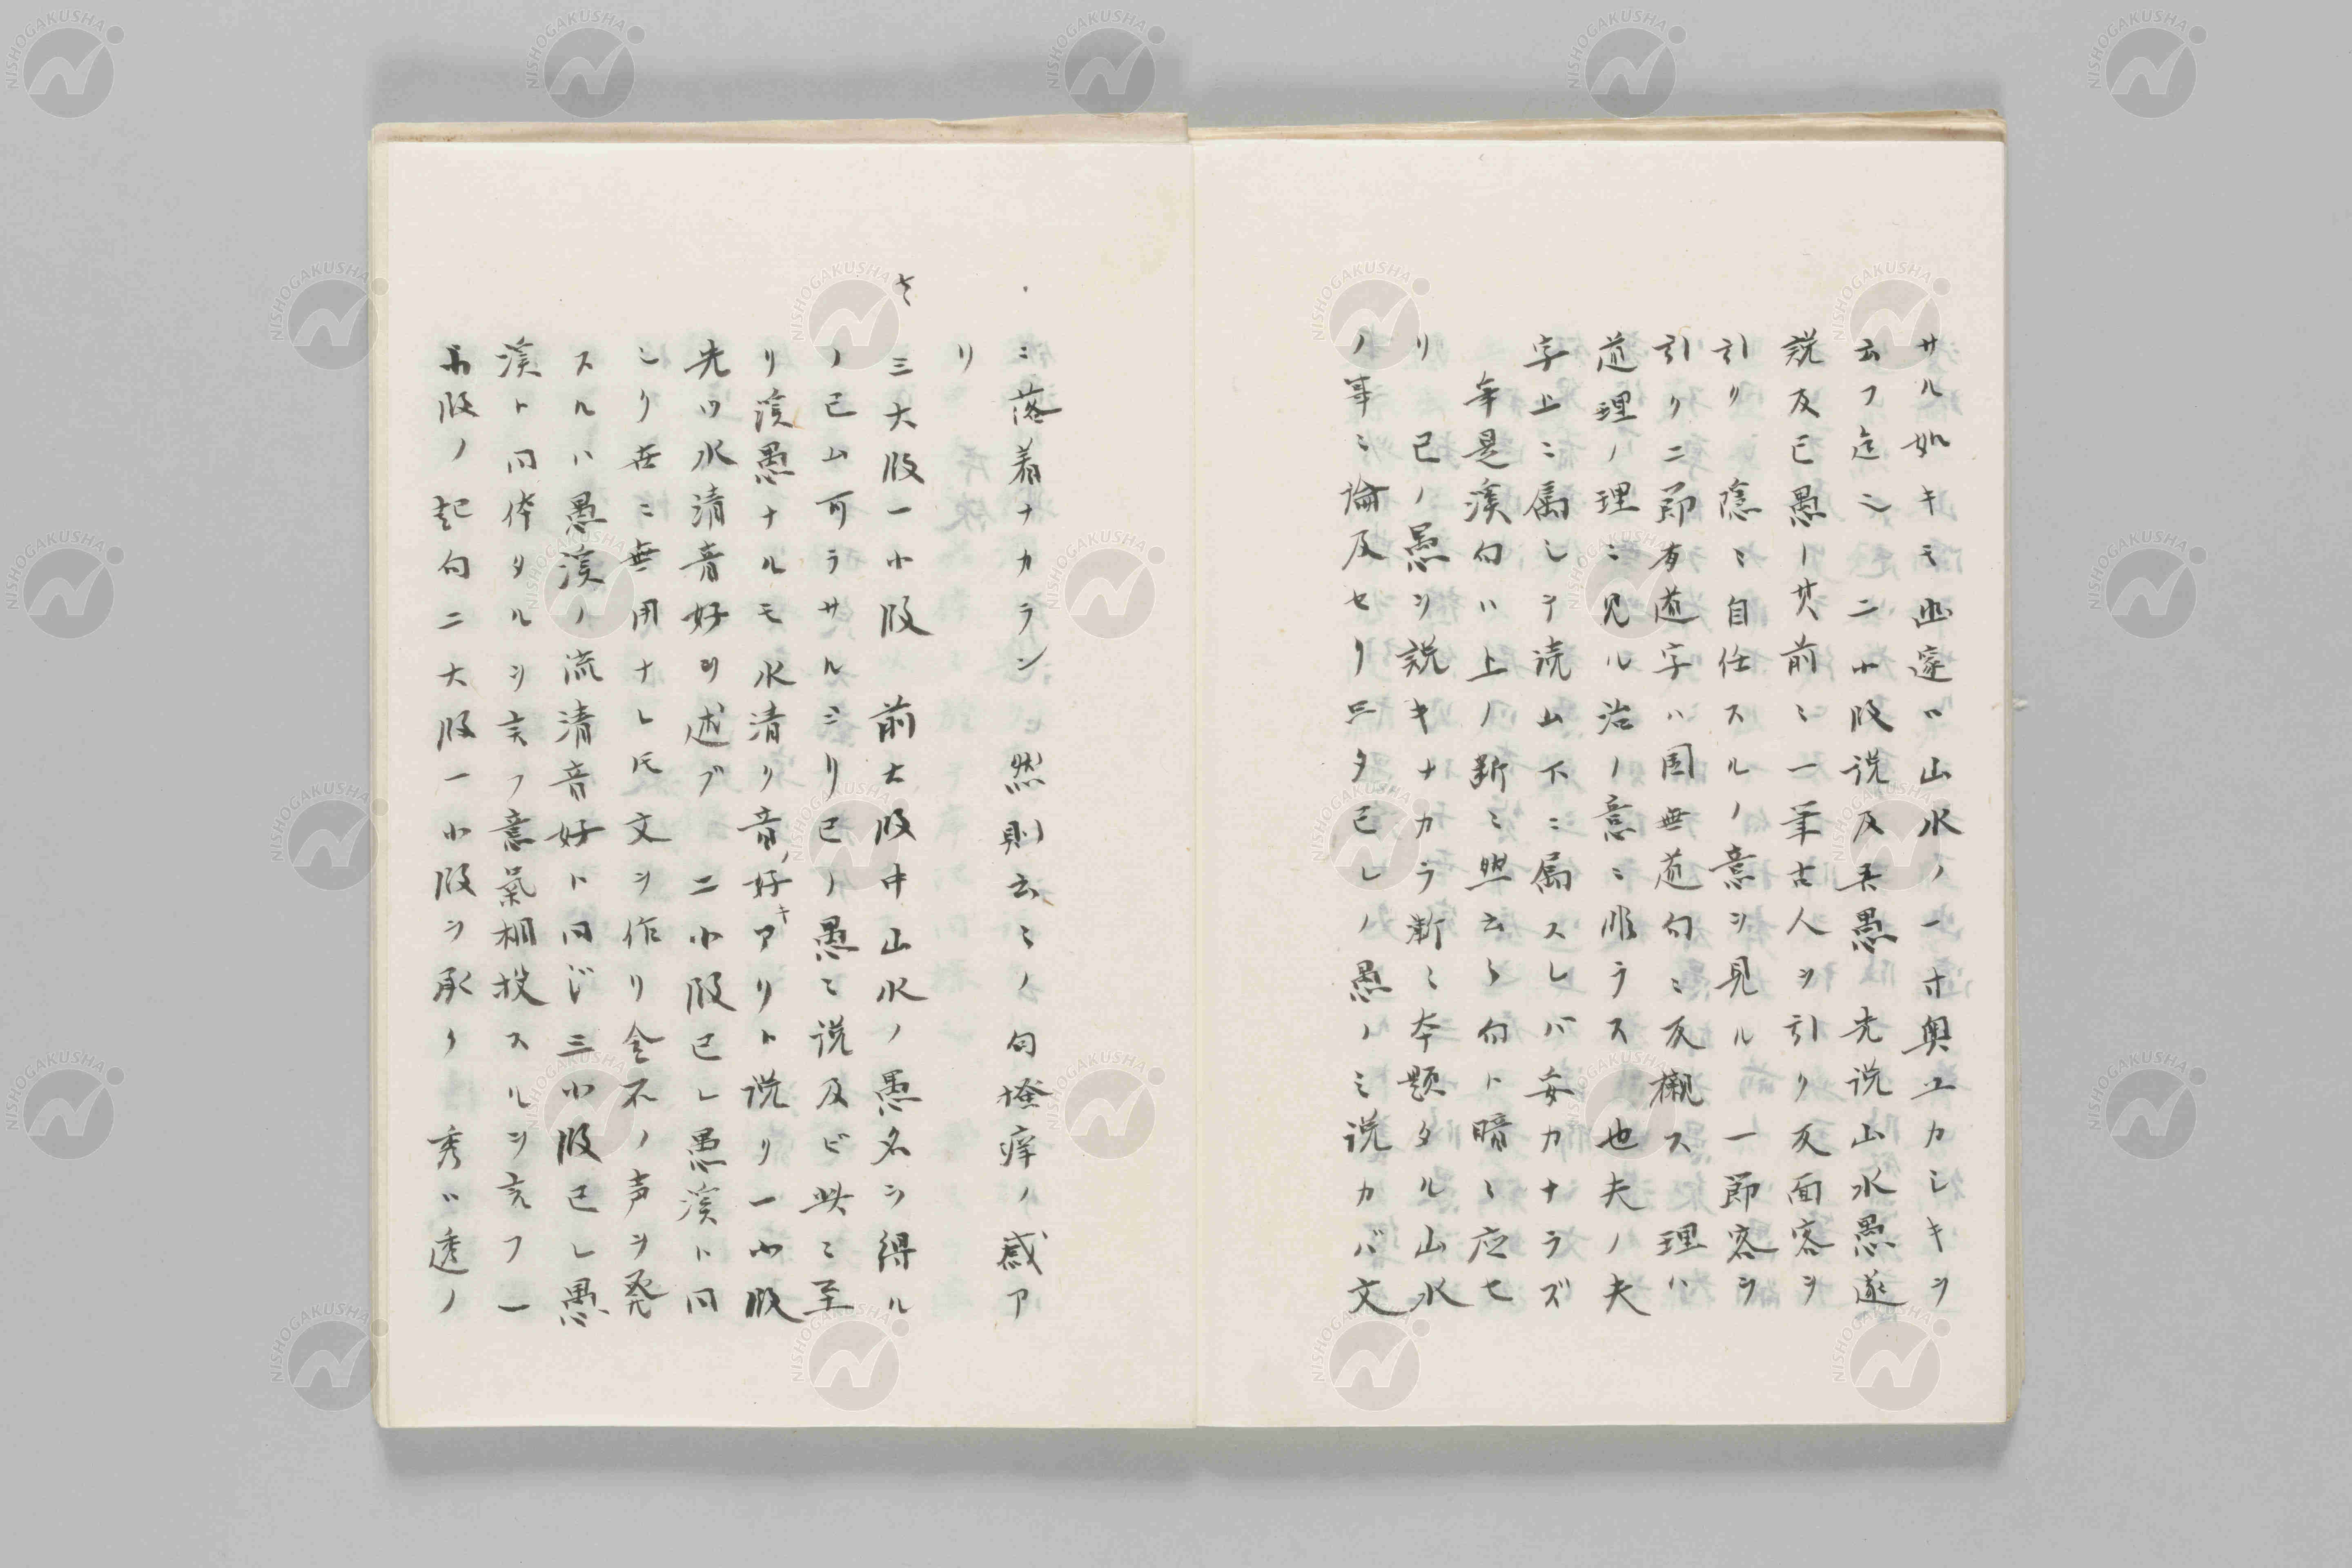 サル如キモ幽邃ハ山水ノ一寸奥エカシキヲ
云フ迄ニ 二小段説及吾愚 先説山水愚遂
説反已愚ノ其前ニ一筆古人ヲ引ク反面客ヲ
引リ 隠ニ自任スルノ意ヲ見ル 一節客ヲ
引ク二節有道字ハ国無道句ニ反襯ス 理ハ
道理ノ理ニ見ル治ノ意ニ順ラス也夫ノ夫
字上ニ属シテ読ム下ニ属スレバ妥カナラズ
年是溪句ハ上ノ断ニ照云々句ト暗ニ応セ
リ 已ノ愚ヲ説キナカラ漸ニ本題タル山水
ノ事ニ論及セリ只タ已レノ愚ノミ説カバ文
ニ落着ナカラン 然則云々ノ句掻痒ノ感ア
リ
三大段一小段 前大段中山水ノ愚名ヲ得ル
ノ已ム可ラサルヨリ已ノ愚ニ説及ビ此ニ至
リ溪愚ナルモ水清ク音ノ好キアリト説リ一小段
先ツ水清音好ヲ述ブ 二小段已レ愚溪ト同
シク世ニ無用ナレ氏文ヲ作リ金石ノ声ヲ発
スルハ愚溪ノ流清音好ト同ジ三小段已レ愚
溪ト同体タルヲ言フ意氣相投スルヲ言フ一
小段ノ起句二大段一小段ヲ承ク 秀ハ透ノ
NISHOGAKUSHA